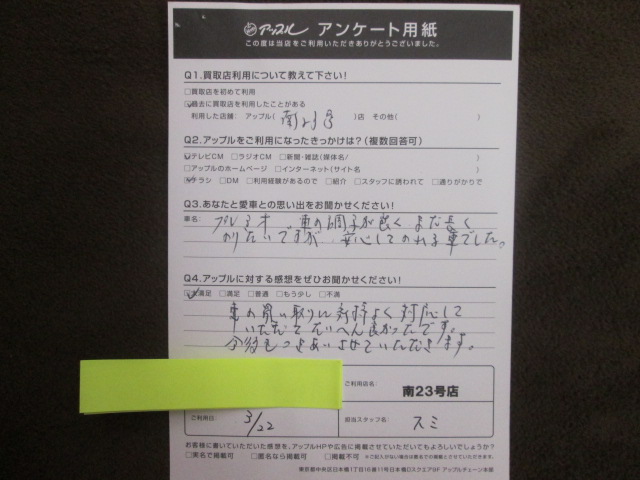 アップル アンケート用紙
この度は当店をご利用いただきありがとうございました。
Q1.買取店利用について教えて下さい!
□買取店を初めて利用
□過去に買取店を利用したことがある
利用した店舗: アップル( 南23号 )店 その他( )
Q2.アップルをご利用になったきっかけは?(複数回答可)
□テレビCM □ラジオCM □新聞・雑誌(媒体名/ )
□アップルのホームページ □インターネット(サイト名 )
□チラシ □DM □利用経験があるので □紹介 □スタッフに誘われて □通りがかりで
Q3.あなたと愛車との思い出をお聞かせください!
車名: プレミオ 車の調子が良く まだ長く
のりたいですが 安心してのれる車でした。
Q4.アップルに対する感想をぜひお聞かせください!
□大満足 □満足 □普通 □もう少し □不満
車の買い取りに気持よく対応して
いただいてたいへん良かったです。
今後もつきあいさせていただきます。
ご利用店名:
南23号店
ご利用日:
3/22
担当スタッフ名:
スミ
お客様に書いていただいた感想を、アップルHPや広告に掲載させていただいてもよろしいでしょうか?
□実名で掲載可 □匿名なら掲載可 □掲載不可 ※ご記入がない場合は匿名での掲載とさせていただきます。
東京都中央区日本橋1丁目16番11号日本橋Dスクエア8F アップルチェーン本部